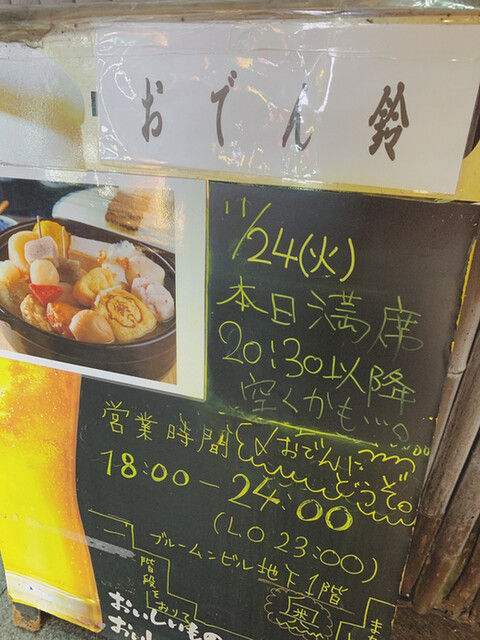 おでん 鈴
11/24(火)
本日満席
20:30以降
空くかも…。
営業時間
〆おでんに
どうぞ。
18:00-24:00
(L.O 23:00)
ブルームンビル地下1階
階段をおりて
おいしいもの
おい